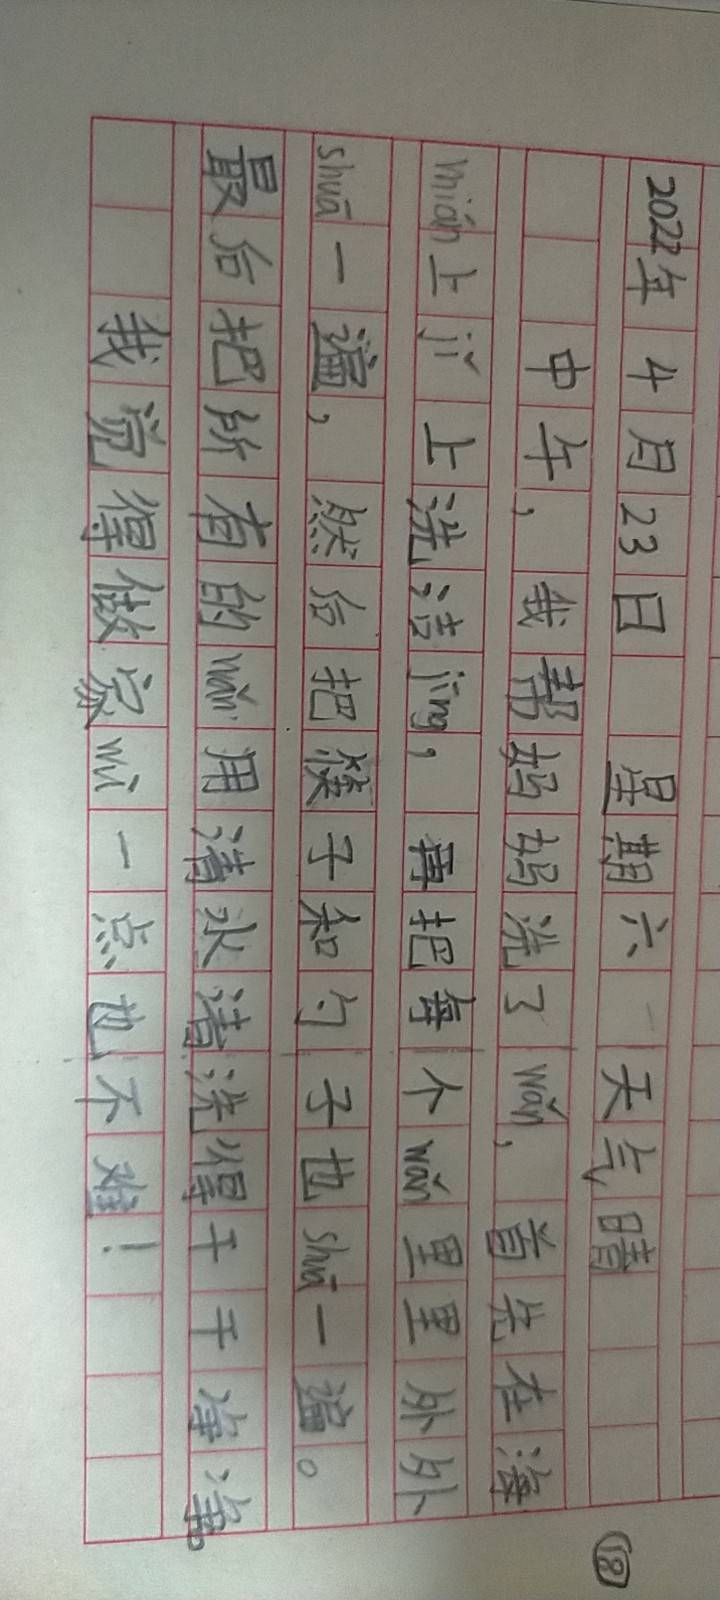 2022年4月23日 星期六 天气晴
中午，我帮妈妈洗了wǎn，首先在海
mián上jǐ上洗洁jīng，再把每个wǎn里里外外
shuā一遍，然后把筷子和勺子也shuā一遍。
最后把所有的wǎn用清水清洗得干干净净。
我觉得做家wù一点也不难！
18